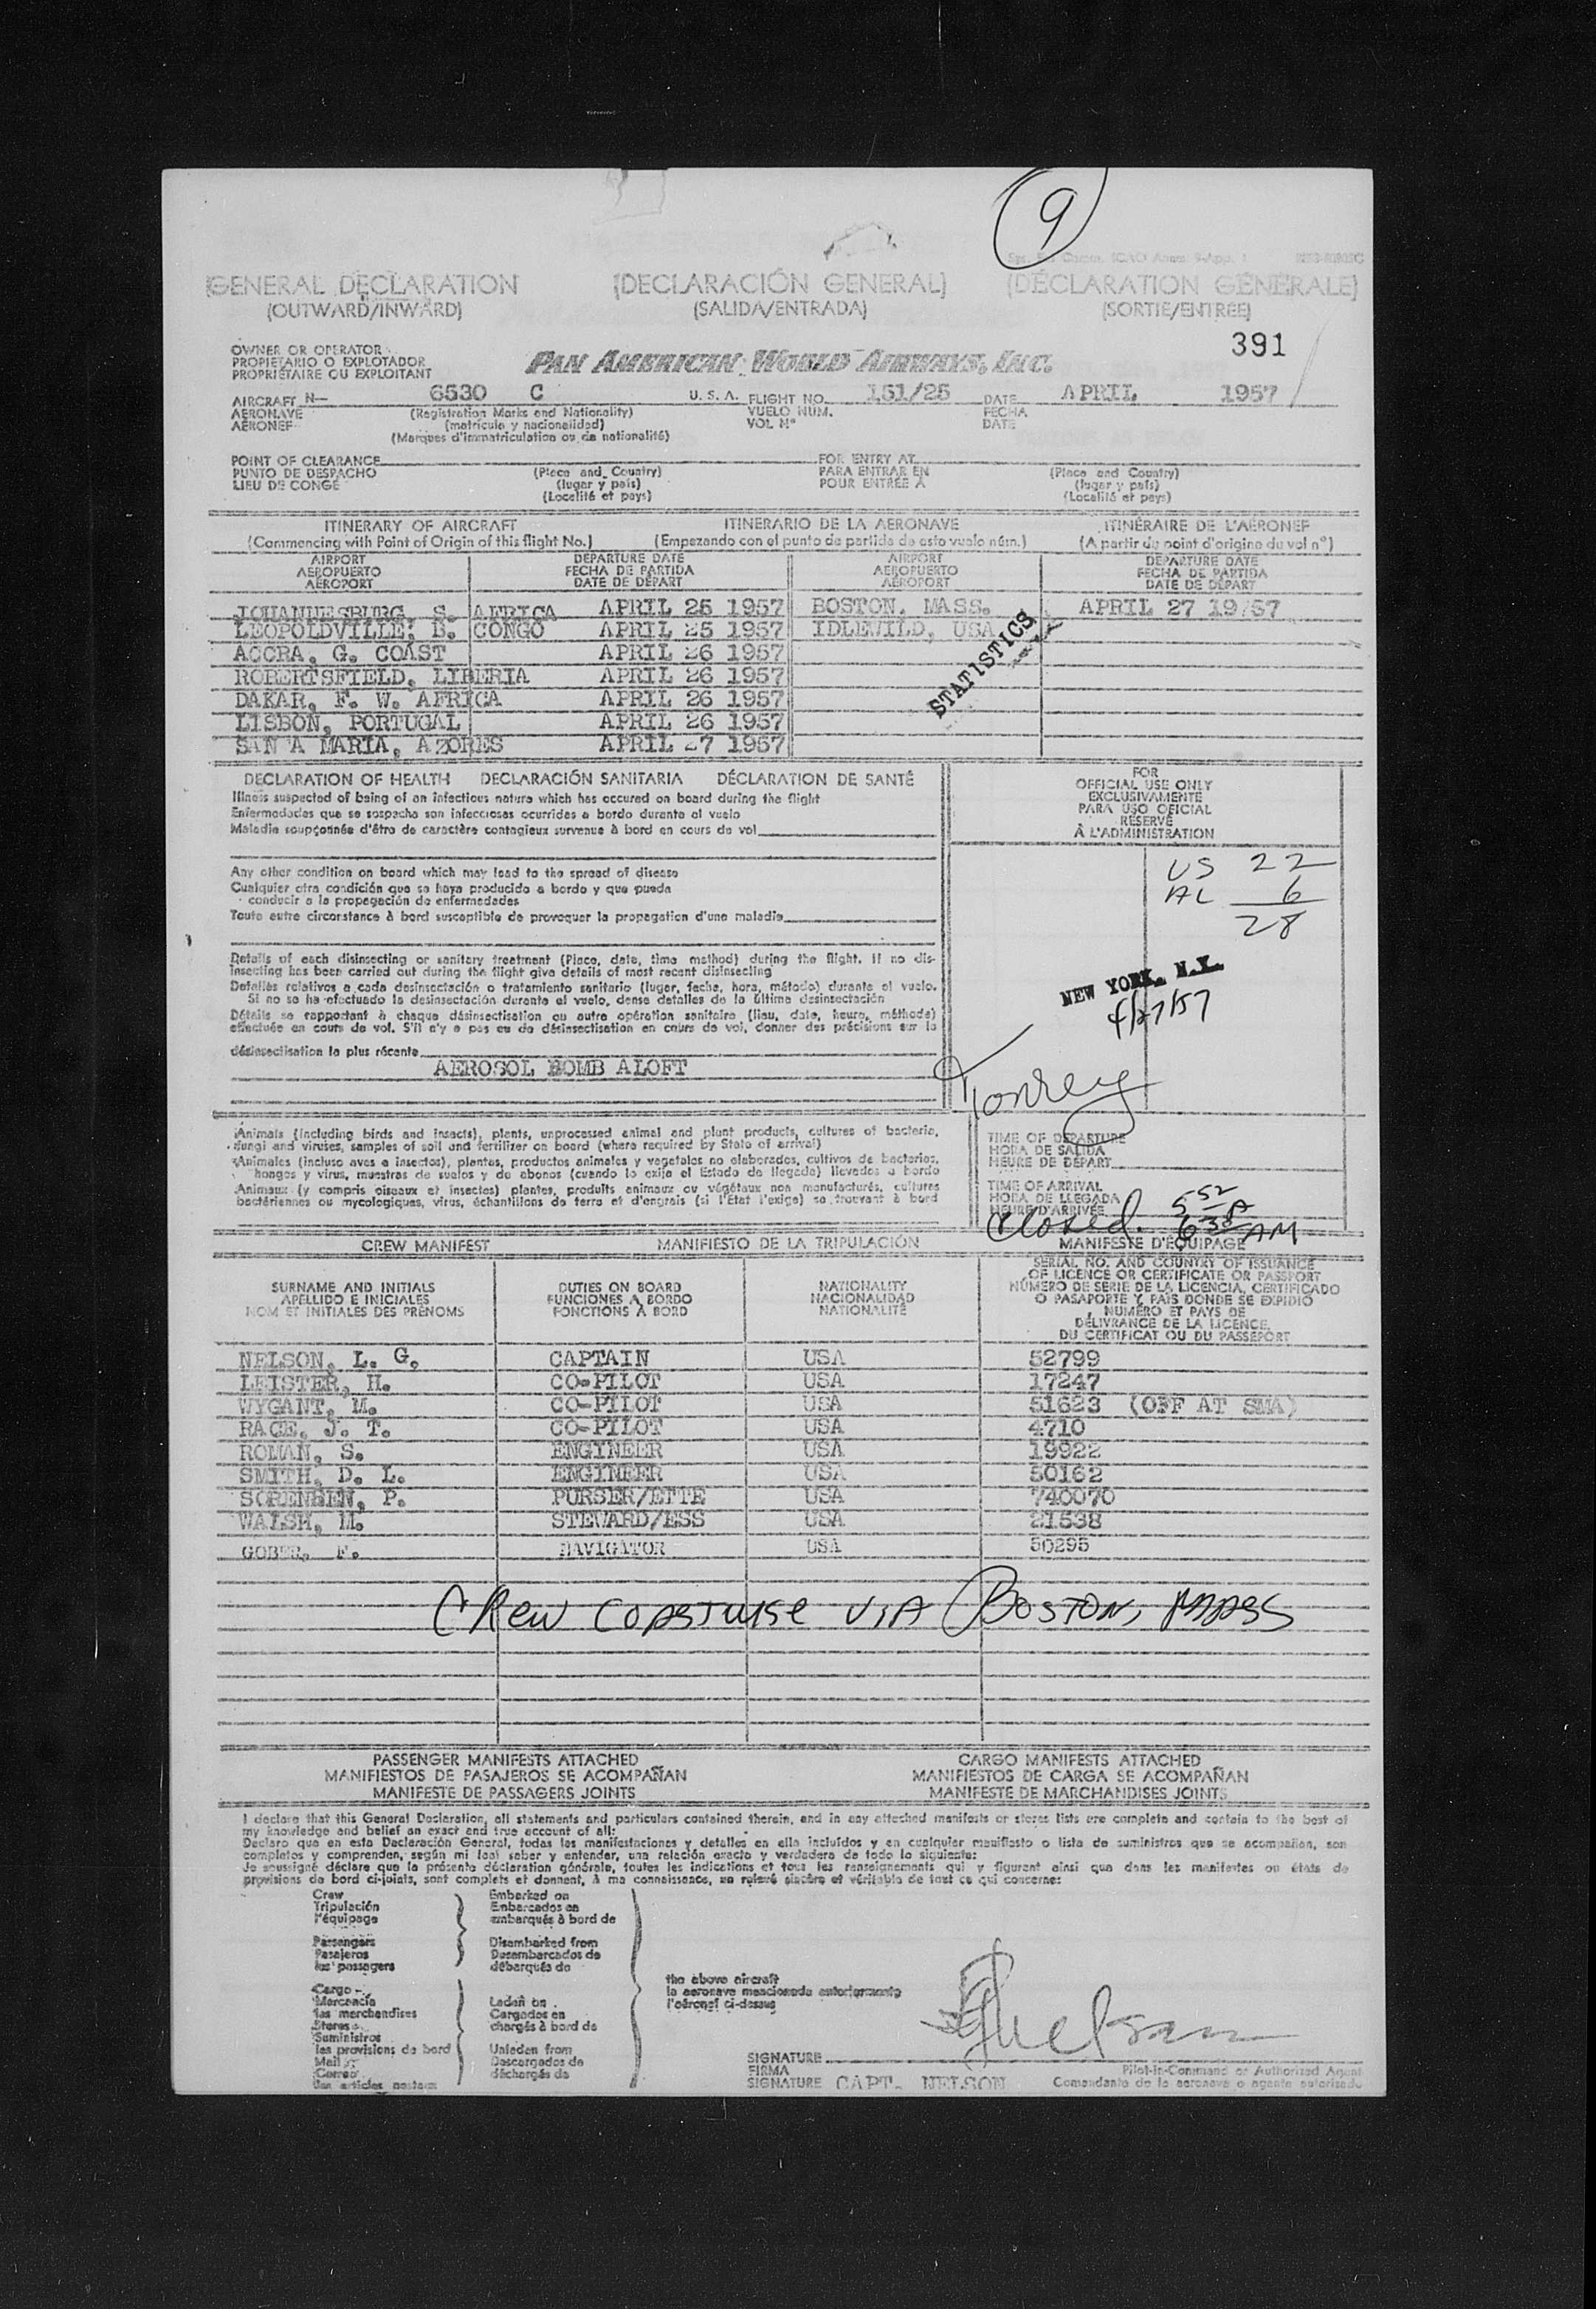 9
GENERAL DECLARATION (DECLARACIÓN GENERAL) (DÉCLARATION GÉNÉRALE)
(OUTWARD/INWARD) (SALIDA/ENTRADA) (SORTIE/ENTREE)
391
OWNER OR OPERATOR
PROPIETARIO O EXPLOTADOR
PROPRIÉTAIRE OU EXPLOITANT
PAN AMERICAN WORLD AIRWAYS, INC.
AIRCRAFT N- 6530 C U. S. A. FLIGHT NO. 151/25 DATE APRIL 1957
AERONAVE (Registration Marks and Nationality) VUELO NUM. FECHA
AERONEF (matrícula y nacionalidad) VOL Nº DATE
(Marques d'immatriculation ou de nationalité)
POINT OF CLEARANCE FOR ENTRY AT
PUNTO DE DESPACHO (Place and Country) PARA ENTRAR EN (Place and Country)
LIEU DE CONGÉ (lugar y país) POUR ENTRÉE À (lugar y país)
(Localité et pays) (Localité et pays)
ITINERARY OF AIRCRAFT ITINERARIO DE LA AERONAVE ITINÉRAIRE DE L'AÉRONEF
(Commencing with Point of Origin of this flight No.) (Empezando con el punto de partida de esto vuelo núm.) (A partir du point d'origine du vol nº)
AIRPORT DEPARTURE DATE AIRPORT DEPARTURE DATE
AEROPUERTO FECHA DE PARTIDA AEROPUERTO FECHA DE PARTIDA
AÉROPORT DATE DE DÉPART AÉROPORT DATE DE DÉPART
JOHANNESBURG, S. AFRICA APRIL 25 1957 BOSTON, MASS. APRIL 27 1957
LEOPOLDVILLE, B. CONGO APRIL 25 1957 IDLEWILD, USA
ACCRA, G. COAST APRIL 26 1957
ROBERTSFIELD, LIBERIA APRIL 26 1957
DAKAR, F. W. AFRICA APRIL 26 1957
LISBON, PORTUGAL APRIL 26 1957
SANTA MARIA, AZORES APRIL 27 1957
STATISTICS
DECLARATION OF HEALTH DECLARACIÓN SANITARIA DÉCLARATION DE SANTÉ
Illness suspected of being of an infectious nature which has occured on board during the flight
Enfermedades que se sospecha son infecciosas ocurridas a bordo durante el vuelo
Maladie soupçonnée d'être de caractère contagieux survenue à bord en cours de vol
Any other condition on board which may lead to the spread of disease
Cualquier otra condición que se haya producido a bordo y que pueda
conducir a la propagación de enfermedades
Toute autre circonstance à bord susceptible de provoquer la propagation d'une maladie
Details of each disinsecting or sanitary treatment (Place, date, time method) during the flight. If no dis-
insecting has been carried out during the flight give details of most recent disinsecting
Detalles relativos a cada desinsectación o tratamiento sanitario (lugar, fecha, hora, método) durante el vuelo.
Si no se ha efectuado la desinsectación durante el vuelo, dense detalles de la última desinsectación
Détails se rapportant à chaque désinsectisation ou autre opération sanitaire (lieu, date, heure, méthode)
effectuée en cours de vol. S'il n'y a pas eu de désinsectisation en cours de vol, donner des précisions sur la
désinsectisation la plus récente
AEROSOL BOMB ALOFT
FOR
OFFICIAL USE ONLY
EXCLUSIVAMENTE
PARA USO OFICIAL
RÉSERVÉ
À L'ADMINISTRATION
US 22
AL 6
28
NEW YORK, N.Y.
4/27/57
Animals (including birds and insects), plants, unprocessed animal and plant products, cultures of bacteria,
fungi and viruses, samples of soil and fertilizer on board (where required by State of arrival)
Animales (incluso aves e insectos), plantas, productos animales y vegetales no elaborados, cultivos de bacterias,
hongos y virus, muestras de suelos y de abonos (cuando lo exija el Estado de llegada) llevados a bordo
Animaux (y compris oiseaux et insectes) plantes, produits animaux ou végétaux non manufacturés, cultures
bactériennes ou mycologiques, virus, échantillons de terre et d'engrais (si l'État l'exige) se trouvant à bord
TIME OF DEPARTURE
HORA DE SALIDA
HEURE DE DÉPART
TIME OF ARRIVAL
HORA DE LLEGADA 5 52 A
HEURE D'ARRIVÉE
Closed. 6 38 AM
CREW MANIFEST MANIFIESTO DE LA TRIPULACIÓN MANIFESTE D'ÉQUIPAGE
SURNAME AND INITIALS DUTIES ON BOARD NATIONALITY SERIAL NO. AND COUNTRY OF ISSUANCE
APELLIDO E INICIALES FUNCIONES A BORDO NACIONALIDAD OF LICENCE OR CERTIFICATE OR PASSPORT
NOM ET INITIALES DES PRÉNOMS FONCTIONS À BORD NATIONALITÉ NÚMERO DE SERIE DE LA LICENCIA, CERTIFICADO
O PASAPORTE Y PAÍS DONDE SE EXPIDIÓ
NUMÉRO ET PAYS DE
DÉLIVRANCE DE LA LICENCE,
DU CERTIFICAT OU DU PASSEPORT
NELSON, L. G. CAPTAIN USA 52799
LEISTER, H. CO-PILOT USA 17247
WYGANT, M. CO-PILOT USA 51623 (OFF AT SMA)
RACE, J. T. CO-PILOT USA 4710
ROMAN, S. ENGINEER USA 19922
SMITH, D. L. ENGINEER USA 50162
SORENSEN, P. PURSER/ETTE USA 740070
WALSH, M. STEWARD/ESS USA 21538
GOBER, F. NAVIGATOR USA 50295
CREW COASTWISE VIA BOSTON, MASS
PASSENGER MANIFESTS ATTACHED CARGO MANIFESTS ATTACHED
MANIFIESTOS DE PASAJEROS SE ACOMPAÑAN MANIFIESTOS DE CARGA SE ACOMPAÑAN
MANIFESTE DE PASSAGERS JOINTS MANIFESTE DE MARCHANDISES JOINTS
I declare that this General Declaration, all statements and particulars contained therein, and in any attached manifests or stores lists are complete and contain to the best of
my knowledge and belief an exact and true account of all:
Declaro que en esta Declaración General, todas las manifestaciones y detalles en ella incluídos y en cualquier manifiesto o lista de suministros que se acompañan, son
completos y comprenden, según mi leal saber y entender, una relación exacta y verdadera de todo lo siguiente:
Je soussigné déclare que la présente déclaration générale, toutes les indications et tous les renseignements qui y figurent ainsi que dans les manifestes ou états de
provisions de bord ci-joints, sont complets et donnent, à ma connaissance, un relevé sincère et véritable de tout ce qui concerne:
Crew Embarked on
Tripulación Embarcados en
l'équipage embarqués à bord de
Passengers Disembarked from
Pasajeros Desembarcados de
les passagers débarqués de
the above aircraft
la aeronave mencionada anteriormente
l'aéronef ci-dessus
Cargo
Mercancía Laden on
les marchandises Cargados en
Stores chargés à bord de
Suministros
les provisions de bord Unladen from
Mail Descargados de
Correo déchargés de
les articles postaux
SIGNATURE
FIRMA Pilot-in-Command or Authorized Agent
SIGNATURE CAPT. NELSON Comandante de la aeronave o agente autorizado